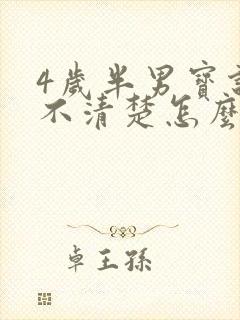 4歲半男寶說
不清楚怎麼
卓王孫